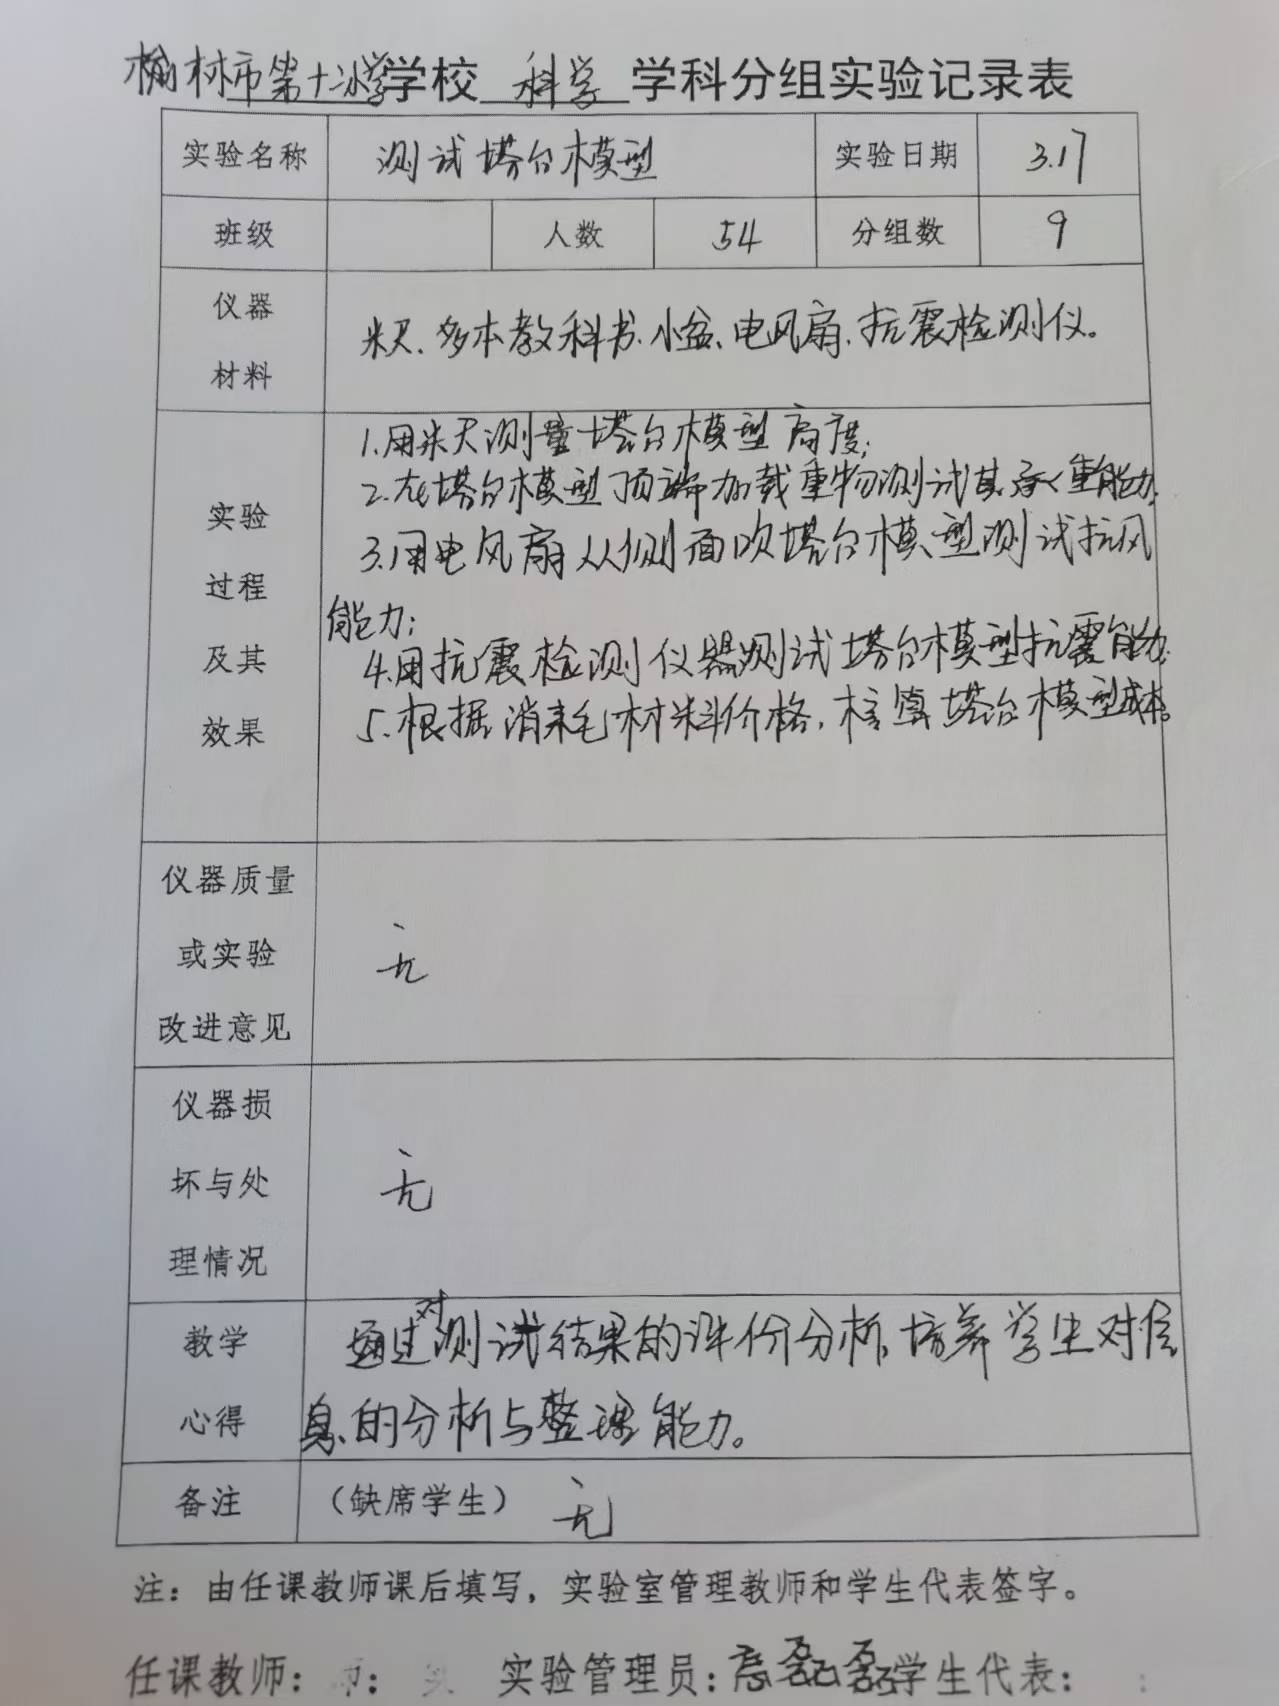 榆林市第十二小学学校 科学 学科分组实验记录表
实验名称 测试塔台模型 实验日期 3.17
班级 人数 54 分组数 9
仪器
材料
米尺、多本教科书、小盆、电风扇、抗震检测仪。
实验
过程
及其
效果
1.用米尺测量塔台模型高度;
2.在塔台模型顶端加载重物测试其承重能力;
3.用电风扇从侧面吹塔台模型测试抗风
能力;
4.用抗震检测仪器测试塔台模型抗震能力;
5.根据消耗材料价格,核算塔台模型成本。
仪器质量
或实验
改进意见
无
仪器损
坏与处
理情况
无
教学
心得
通过对测试结果的评价分析,培养学生对信
息的分析与整理能力。
备注 (缺席学生) 无
注:由任课教师课后填写,实验室管理教师和学生代表签字。
任课教师: 实验管理员:高磊磊 学生代表: